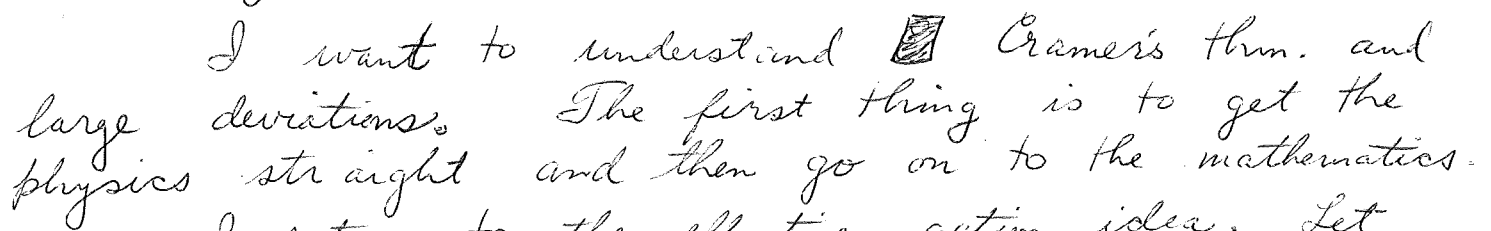 I want to understand Cramer's thm. and
large deviations. The first thing is to get the
physics straight and then go on to the mathematics.
to the idea. Let